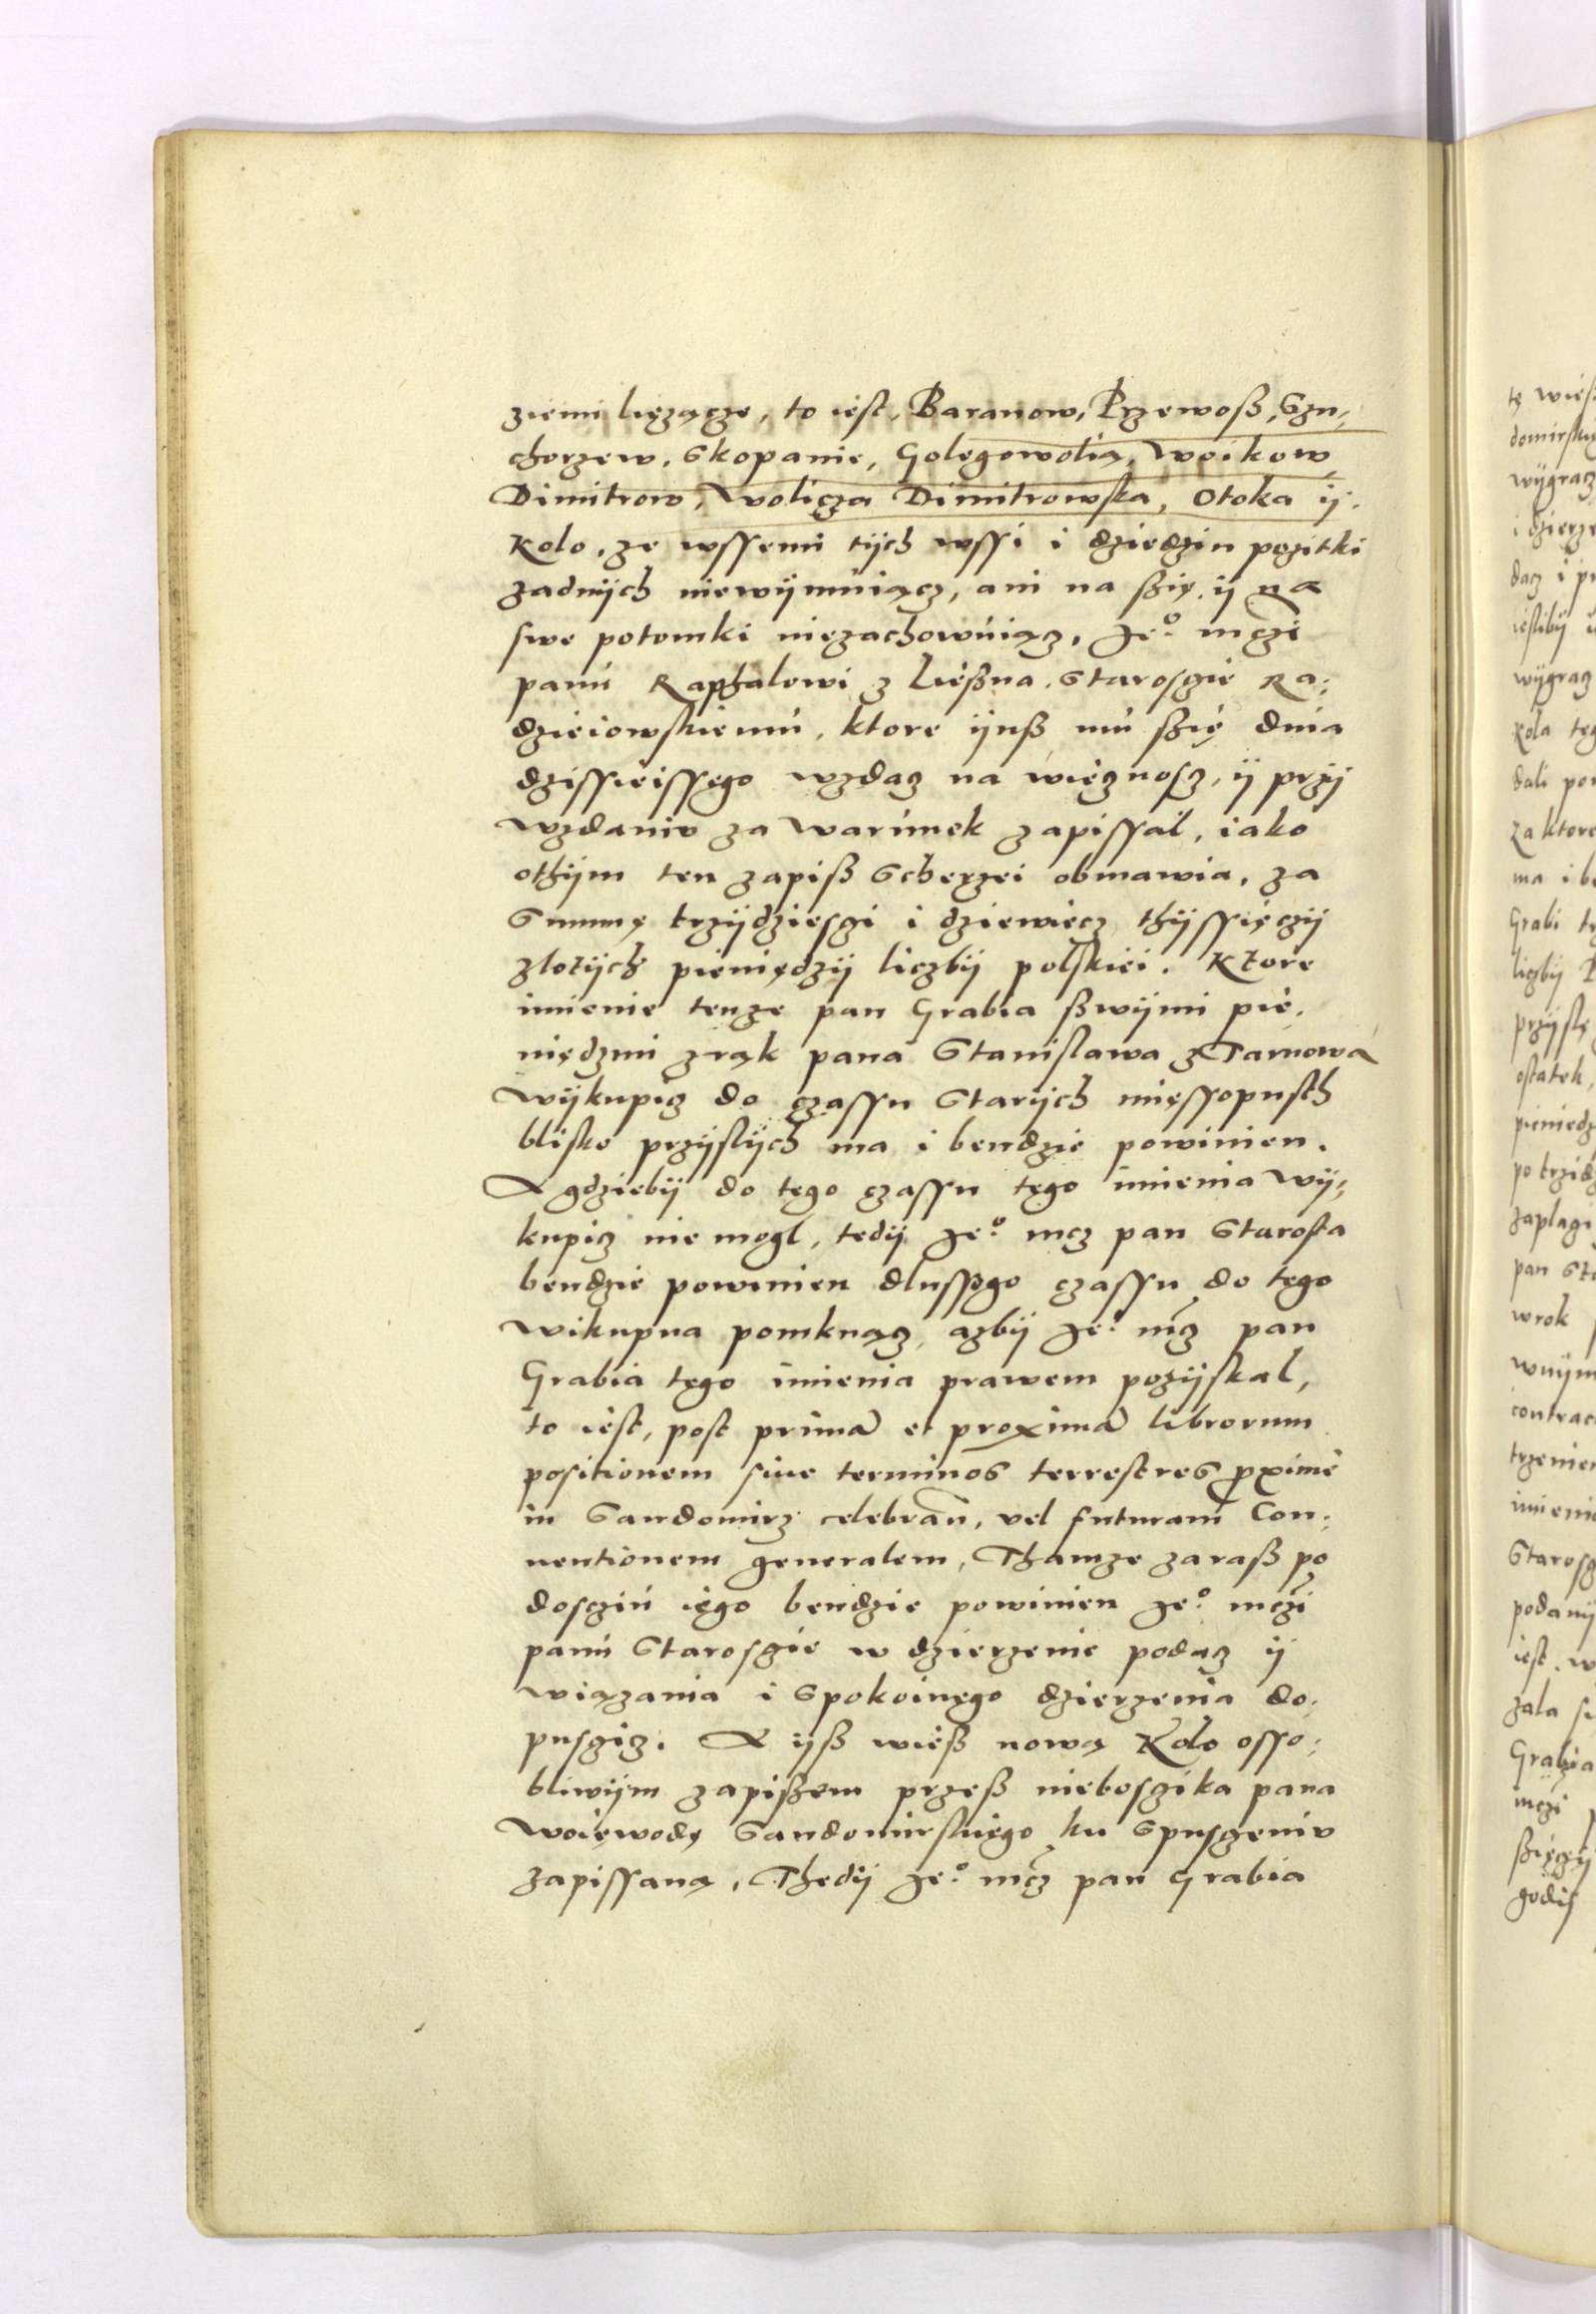 ziemi liężącze, to iest, Baranow, Przewoß, Szu¬
chorzew, Skopanie, Golęgowolią, Woikow
Dimitrow, Wolicza Dimitrowska, Otoka ij
Kolo, ze wssemi tijch wssi i dziedzin pozitki
zadnijch niewijmuiącz, ani na ßię, ij na
swe potomki niezachowuiącz, Jeº mczi
panu Raphalowi z Ließna Starosczie Ra¬
dzieiowskiemu, ktore ijnß mu ßię dnia
dzissieissego wzdacz na wiecznoscz, ij przij
wzdaniu za warunek zapissal, iako
othijm ten zapiß Scherzei obmawia, za
Summę trzijdziesczi i dziewiecz thijssięczij
zlotijch pieniędzij liczbij polskiei. Ktore
imienie tenze pan Grabia ßwijmi pie¬
niędzmi z rąk pana Stanislawa z Tarnowa
wijkupicz do czassu Starijch mięssopusth
blisko przijslijch ma i bendzie powinien.
A gdziebij do tego czassu tego imienia wij¬
kupicz nie mogl, tedij Jeº mcz pan Starosta
bendzie powinien dlussego czassu do tego
wikupna pomknącz, azbij Jeº mcz pan
Grabia tego imienia prawem pozijskal,
to iest, post primā et proximā librorum
positionem siue terminos terrestres proxime
in Sandomirz celebrān, vel futuram Con¬
uentionem generalem, Thamze zaraß po
dosczíu iego bendzie powinien Jeº mczi
panu Starosczie w dzierzenie podacz ij
wiązania i Spokoinego dzierzenia do¬
pusczicz. A ijß wieß nową Kolo osso¬
bliwijm zapißem przeß nieboszika pana
Woiewodę Sandomirskiego ku Spusczeniu
zapissaną, Thedij Jeº mcz pan Grabia